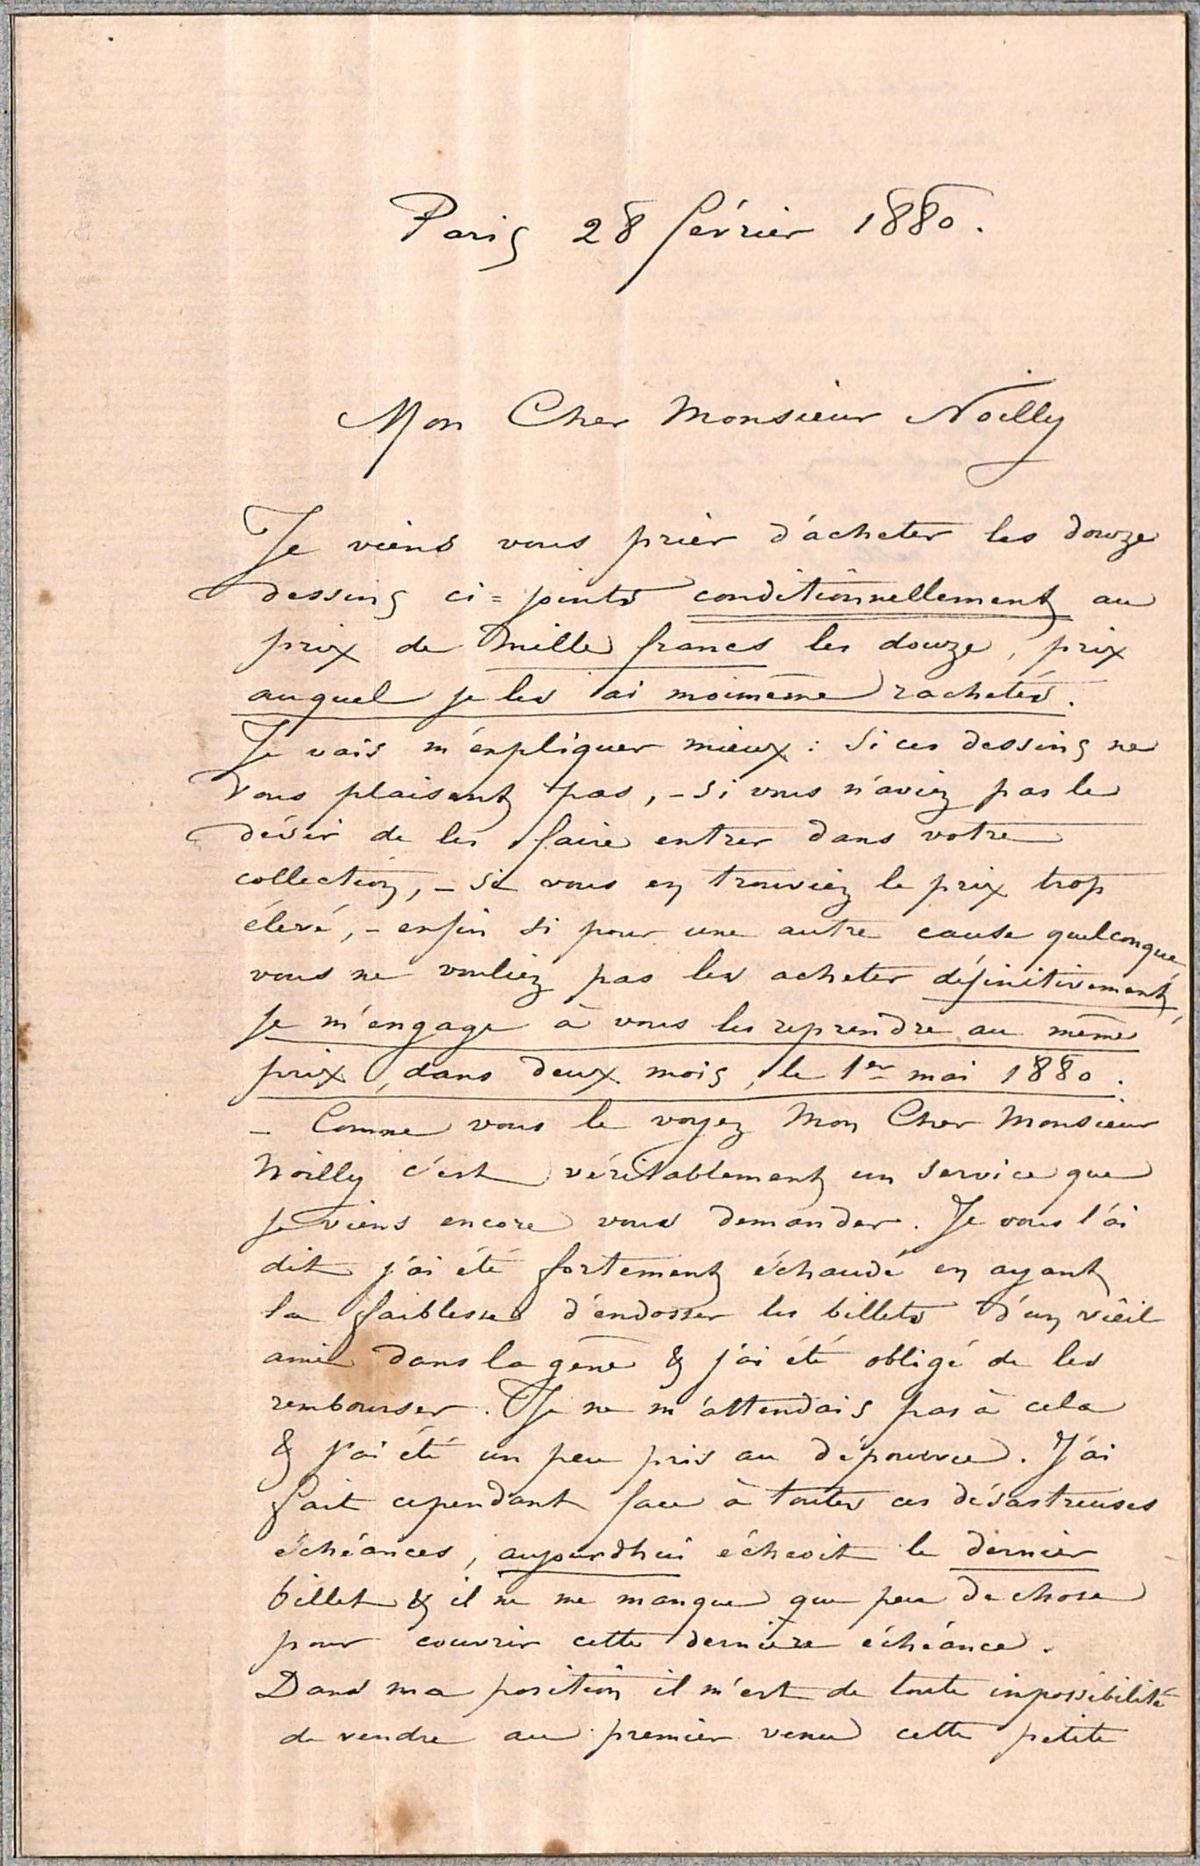 Paris 28 février 1880.
Mon Cher Monsieur Noilly
Je viens vous prier d'acheter les douze
dessins ci=joints conditionnellement au
prix de mille francs les douze, prix
auquel je les ai moimême rachetés.
Je vais m'expliquer mieux : Si ces dessins ne
vous plaisent pas, – si vous n'aviez pas le
désir de les faire entrer dans votre
collection, – si vous en trouviez le prix trop
élevé, – enfin si pour une autre cause quelconque
vous ne vouliez pas les acheter définitivement,
je m'engage à vous les reprendre au même
prix, dans deux mois, le 1er mai 1880.
– Comme vous le voyez Mon Cher Monsieur
Noilly c'est véritablement un service que
je viens encore vous demander. Je vous l'ai
dit j'ai été fortement échaudé en ayant
la faiblesse d'endosser les billets d'un vieil
ami dans la gêne & j'ai été obligé de les
rembourser. Je ne m'attendais pas à cela
& j'ai été un peu pris au dépourvu. J'ai
fait cependant face à toutes ces désastreuses
échéances, aujourdhui échoit le dernier
billet & il ne me manque que peu de chose
pour couvrir cette dernière échéance.
Dans ma position il m'est de toute impossibilité
de vendre au premier venu cette petite